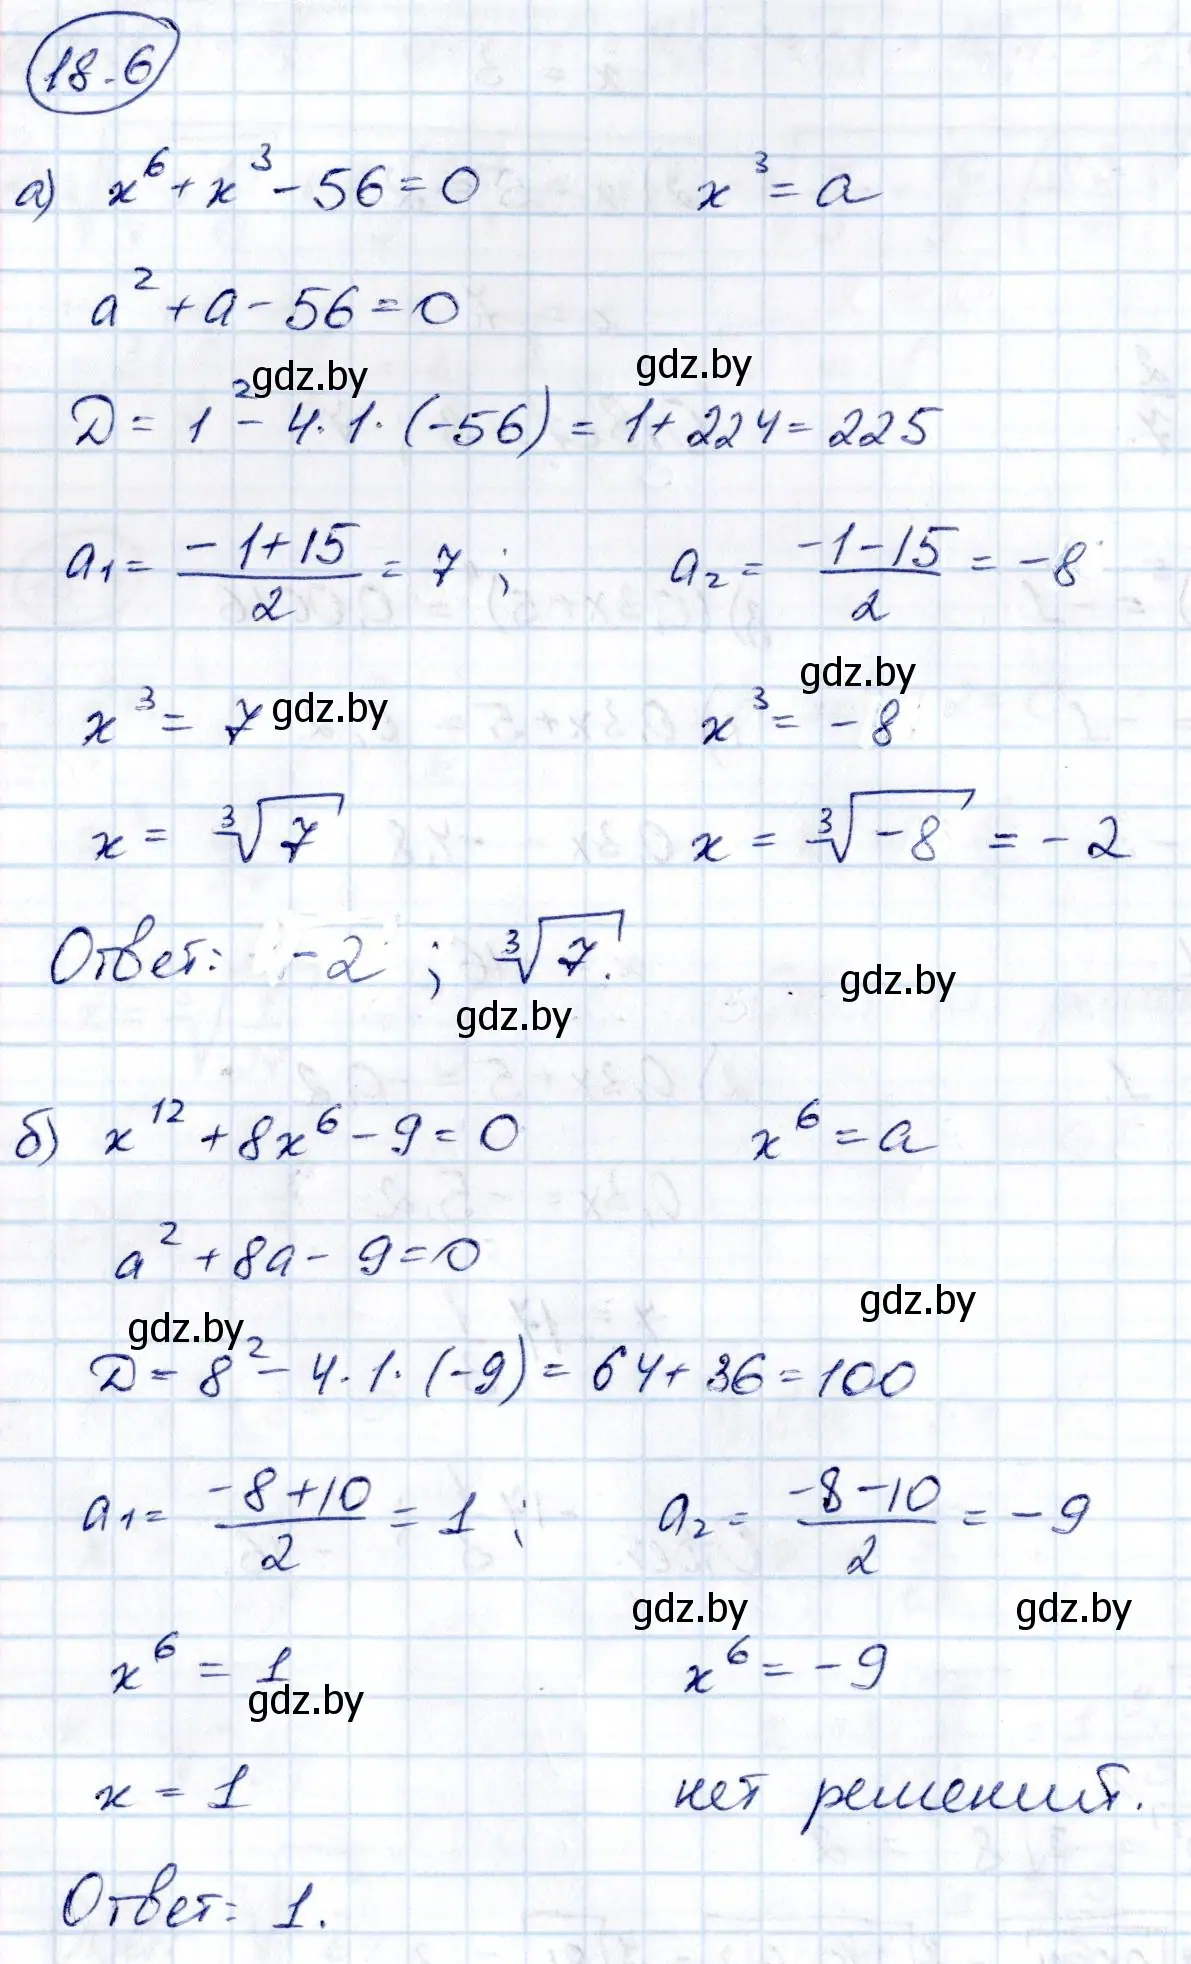 18.6
а) x⁶ + x³ - 56 = 0 x³ = a
a² + a - 56 = 0
gdz.by gdz.by
D = 1² - 4·1·(-56) = 1 + 224 = 225
a₁ = (-1+15)/2 = 7 ; a₂ = (-1-15)/2 = -8
gdz.by
x³ = 7 gdz.by x³ = -8
x = ∛7 x = ∛-8 = -2
Ответ: -2 ; ∛7.
gdz.by gdz.by
б) x¹² + 8x⁶ - 9 = 0 x⁶ = a
a² + 8a - 9 = 0
gdz.by gdz.by
D = 8² - 4·1·(-9) = 64 + 36 = 100
a₁ = (-8+10)/2 = 1 ; a₂ = (-8-10)/2 = -9
gdz.by gdz.by
x⁶ = 1 x⁶ = -9
gdz.by
x = 1 нет решений.
Ответ: 1.